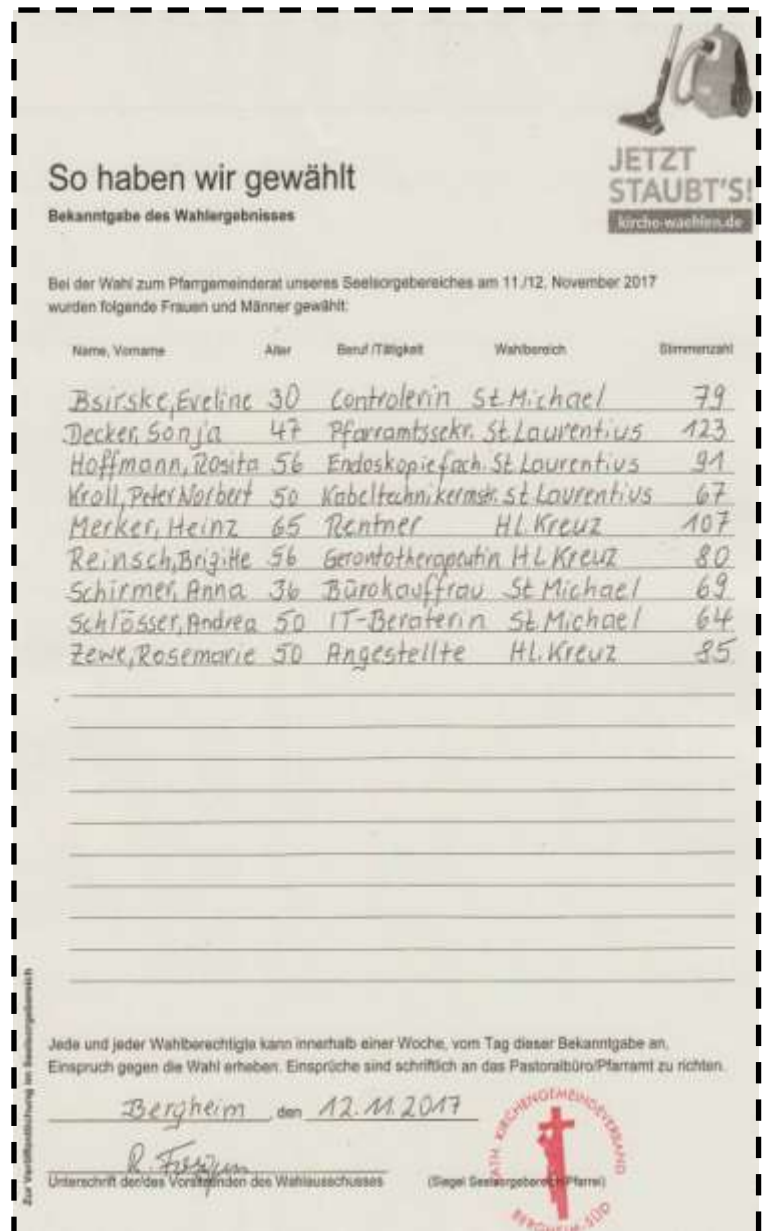 JETZT
STAUBT'S!
kirche-waehlen.de
So haben wir gewählt
Bekanntgabe des Wahlergebnisses
Bei der Wahl zum Pfarrgemeinderat unseres Seelsorgebereiches am 11./12. November 2017
wurden folgende Frauen und Männer gewählt:
Name, Vorname Alter Beruf /Tätigkeit Wahlbereich Stimmenzahl
Bsirske, Eveline 30 Controlerin St. Michael 79
Decker, Sonja 47 Pfarramtssekr. St. Laurentius 123
Hoffmann, Rosita 56 Endoskopiefach. St. Laurentius 91
Kroll, Peter Norbert 50 Kabeltechnikermstr. St. Laurentius 67
Merker, Heinz 65 Rentner Hl. Kreuz 107
Reinsch, Brigitte 56 Gerontotherapeutin Hl. Kreuz 80
Schirmer, Anna 36 Bürokauffrau St. Michael 69
Schlösser, Andrea 50 IT-Beraterin St. Michael 64
Zewe, Rosemarie 50 Angestellte Hl. Kreuz 85
Zur Veröffentlichung im Seelsorgebereich
Jede und jeder Wahlberechtigte kann innerhalb einer Woche, vom Tag dieser Bekanntgabe an,
Einspruch gegen die Wahl erheben. Einsprüche sind schriftlich an das Pastoralbüro/Pfarramt zu richten.
Bergheim, den 12.11.2017
Unterschrift der/des Vorsitzenden des Wahlausschusses (Siegel Seelsorgebereich/Pfarrei)
KATH. KIRCHENGEMEINDEVERBAND
BERGHEIM-SÜD